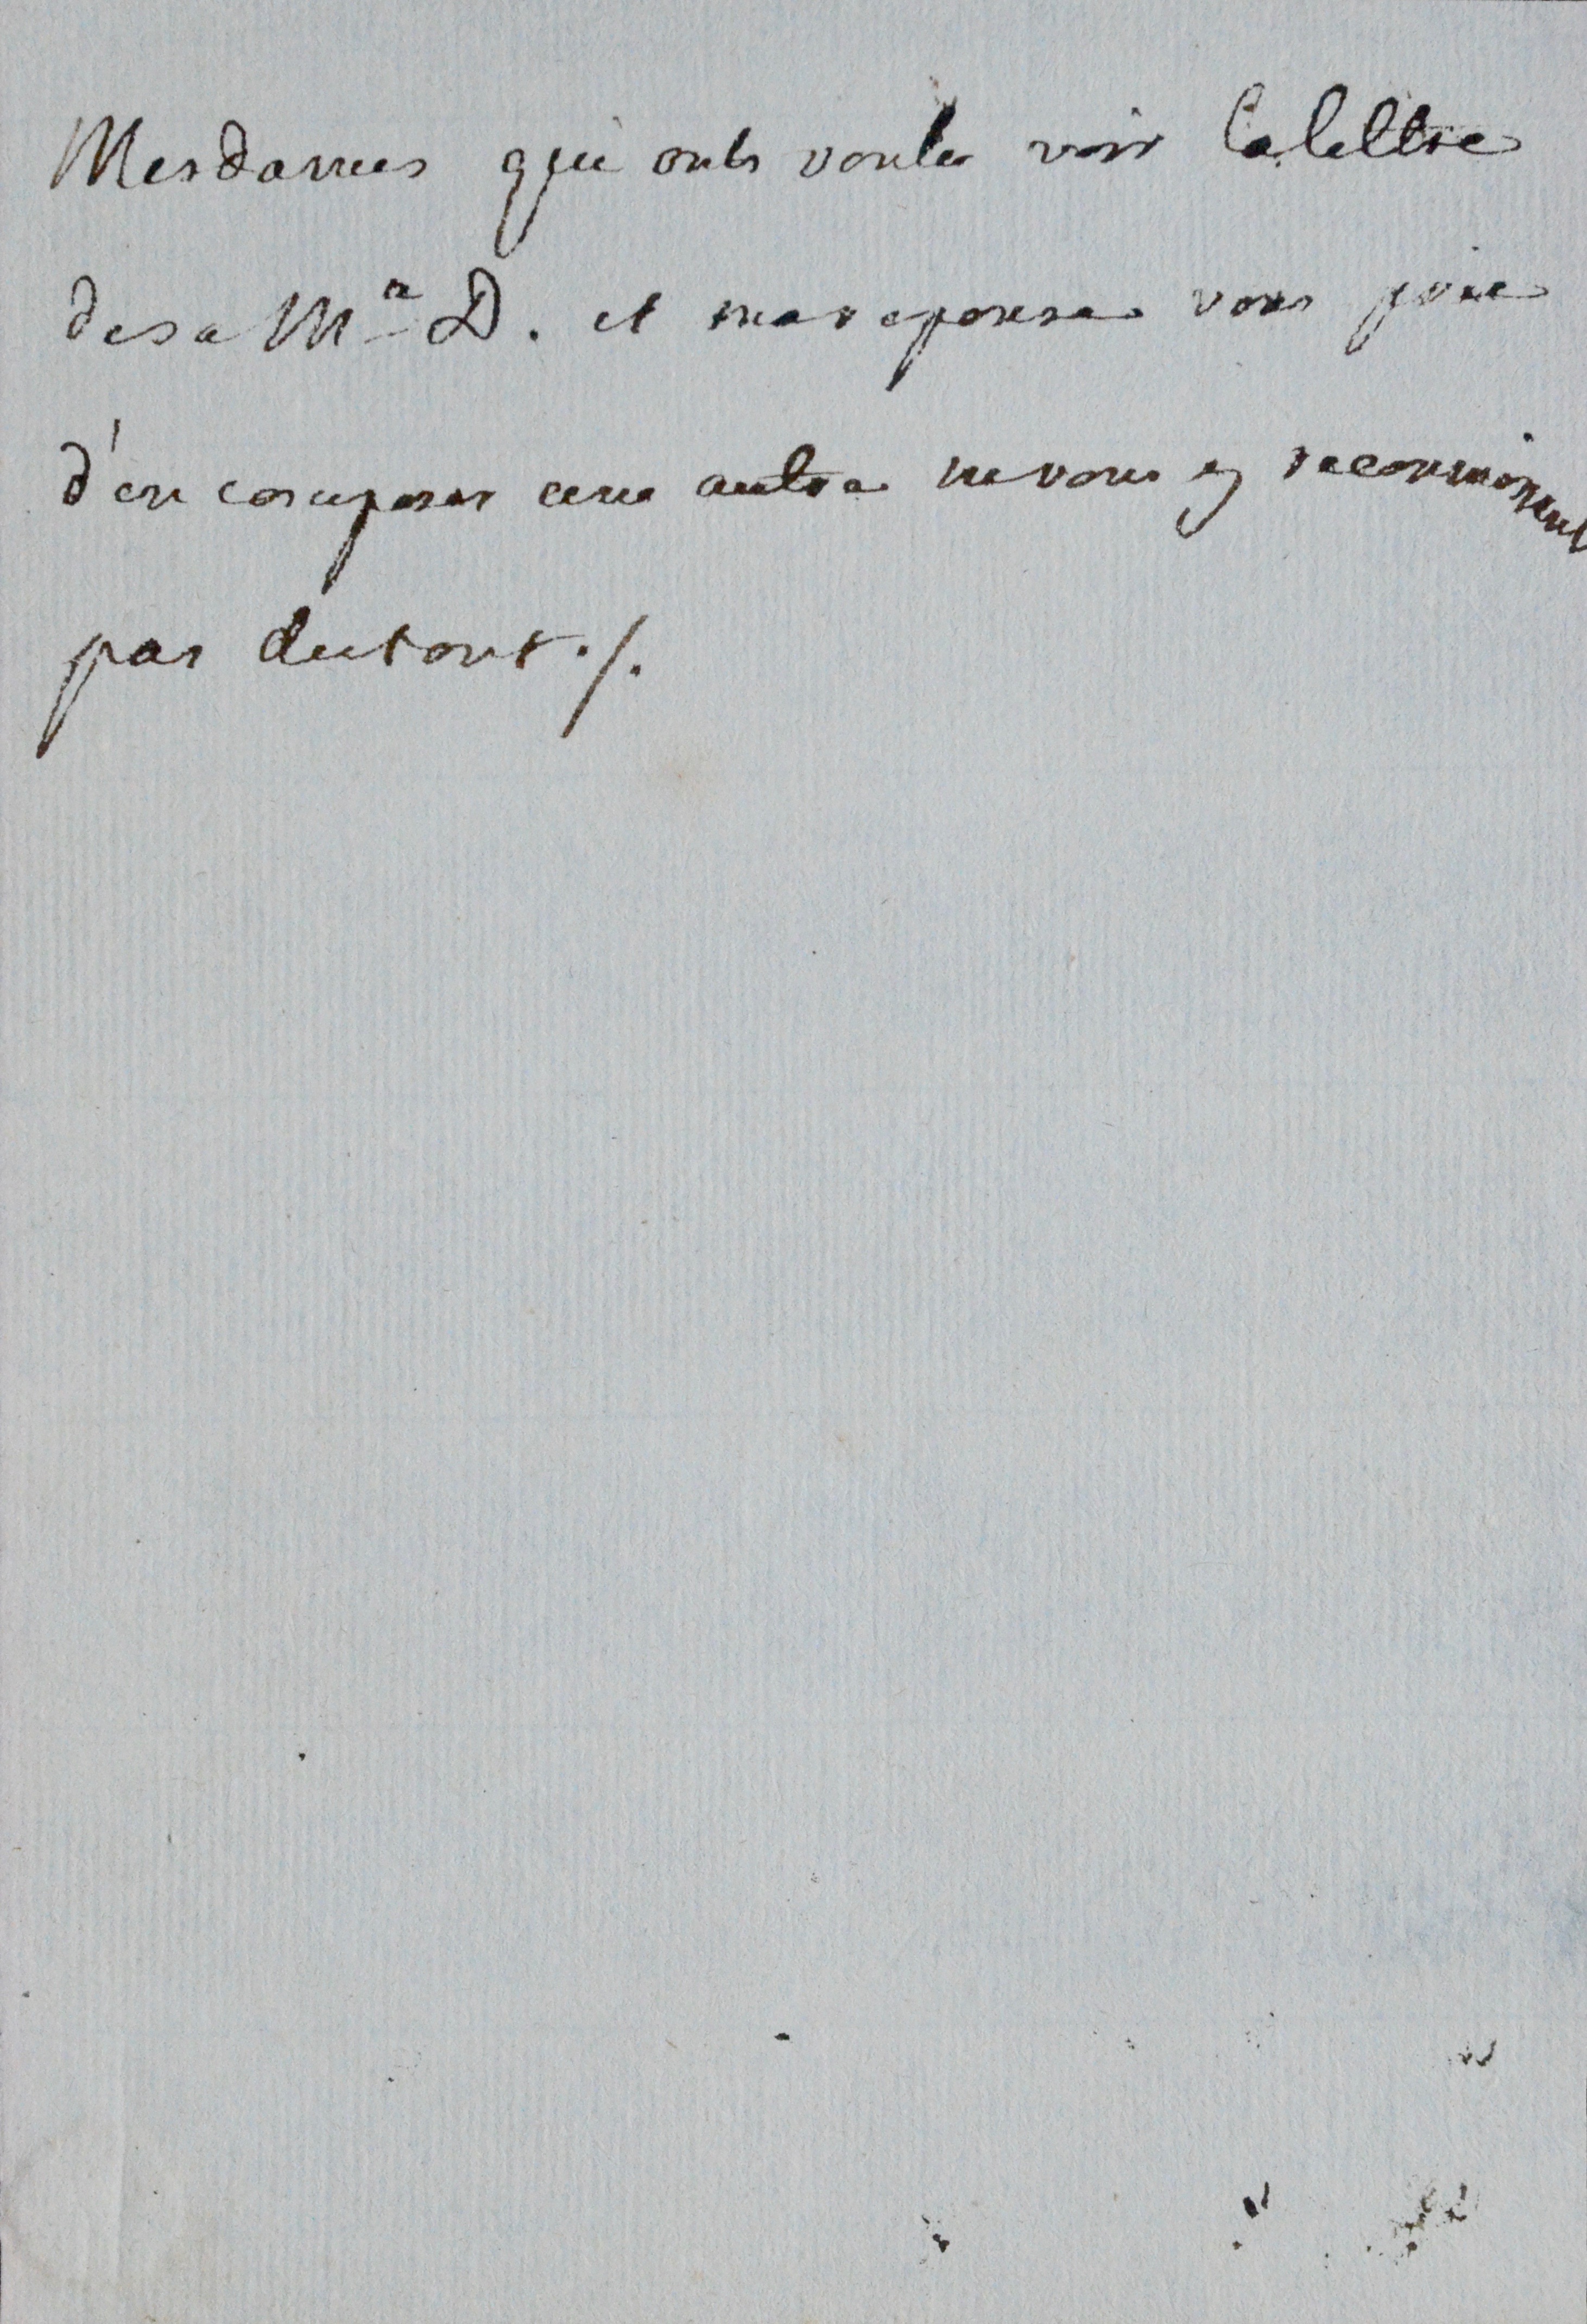 Mesdames qui ont voulu voir la lettre
de sa M.re D. et ma reponse vous prie
d'en composer une autre ne vous y reconnoissent
pas du tout ./.